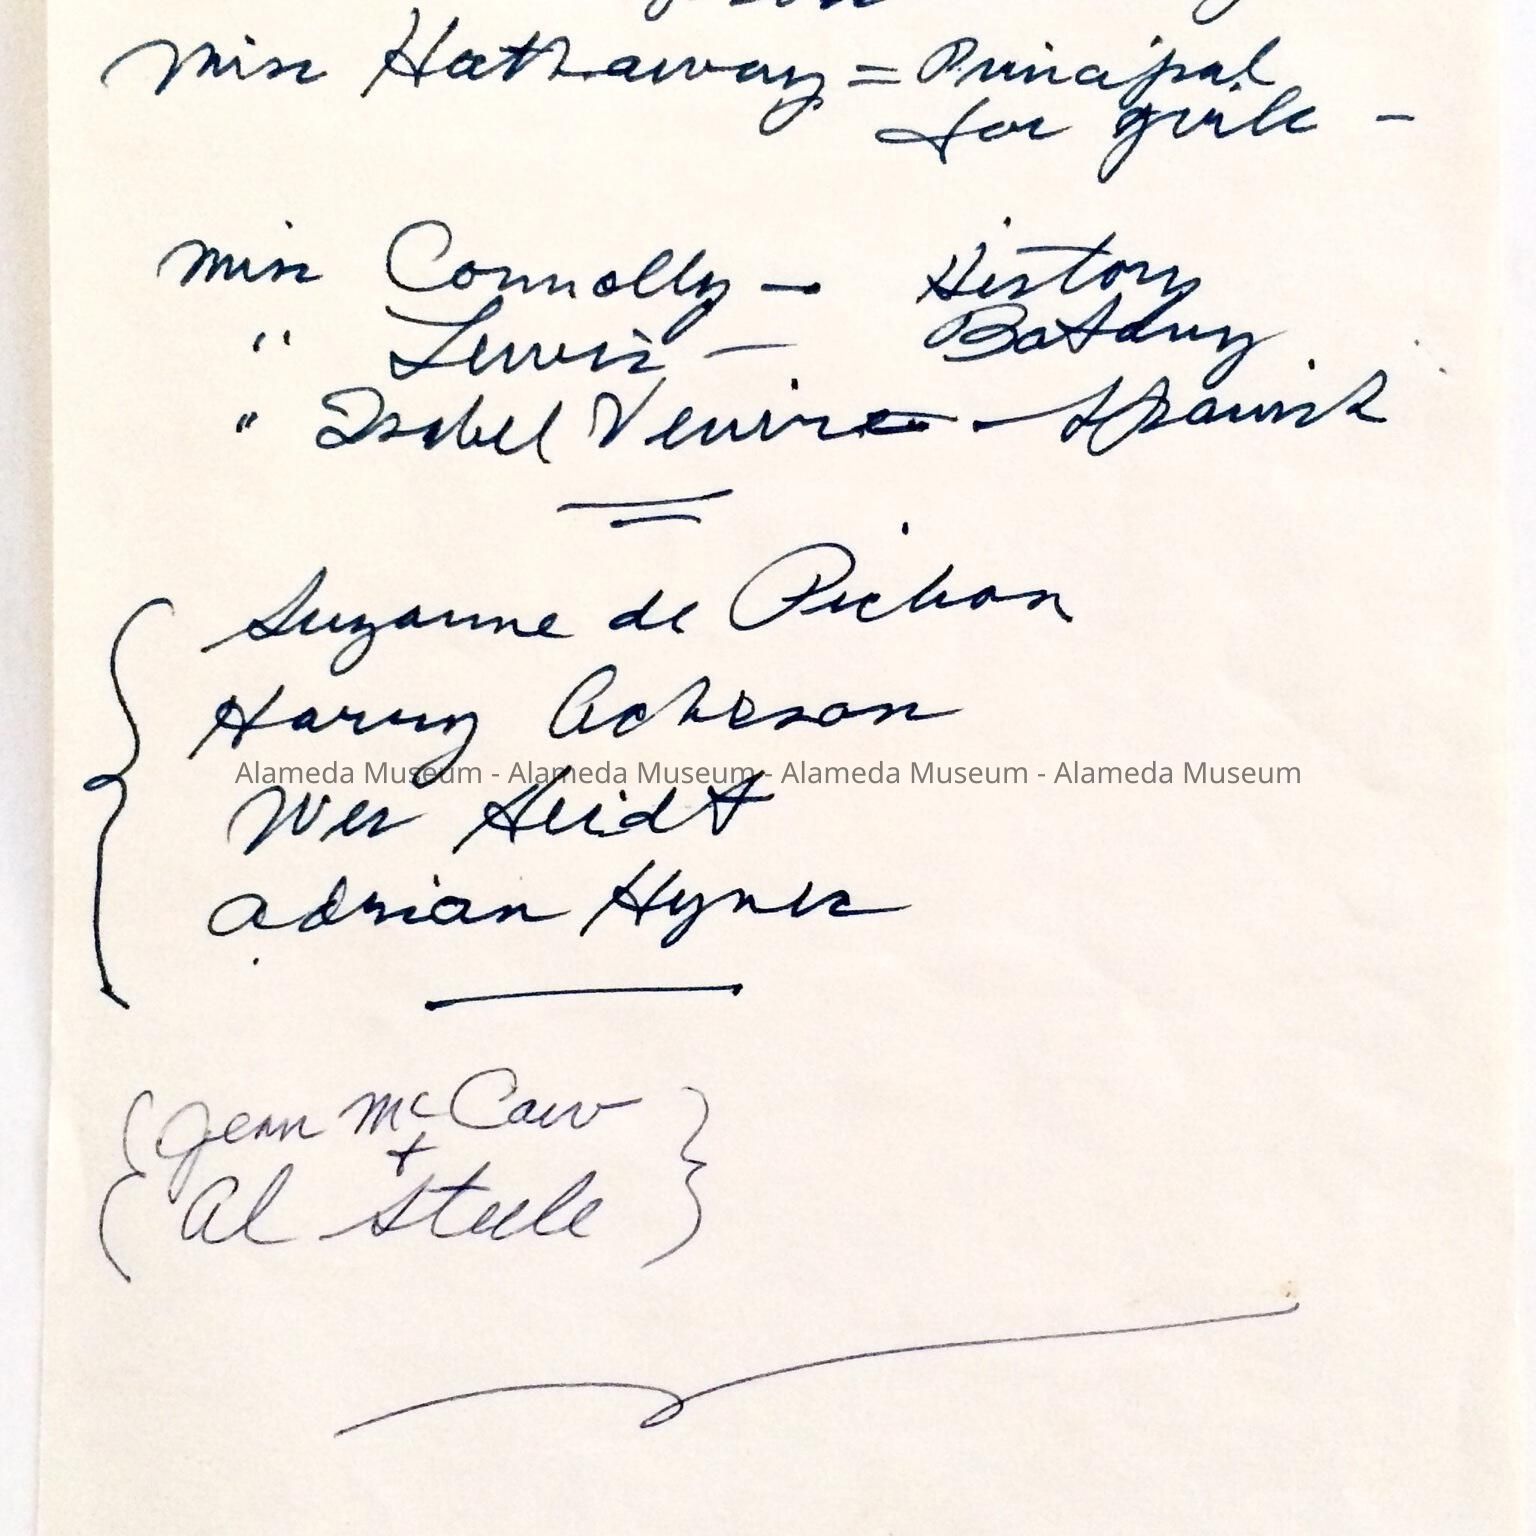 Miss Hathaway = Principal
for girls -
Miss Connolly - History
" Lewis - Botany
" Isabel - Spanish
Suzanne de Pichon
Harry Acheson
Alameda Museum - Alameda Museum - Alameda Museum - Alameda Museum
Wes Heidt
Adrian Hynes
{ Jean McCaw }
+
{ Al Steele }